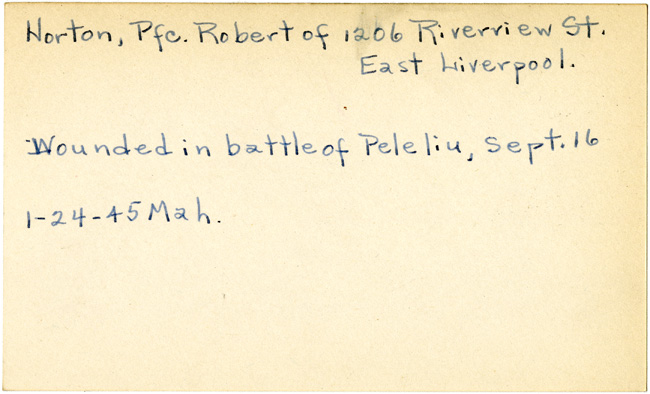 Norton, Pfc. Robert of 1206 Riverview St.
East Liverpool.
Wounded in battle of Peleliu, Sept. 16
1-24-45 Mah.